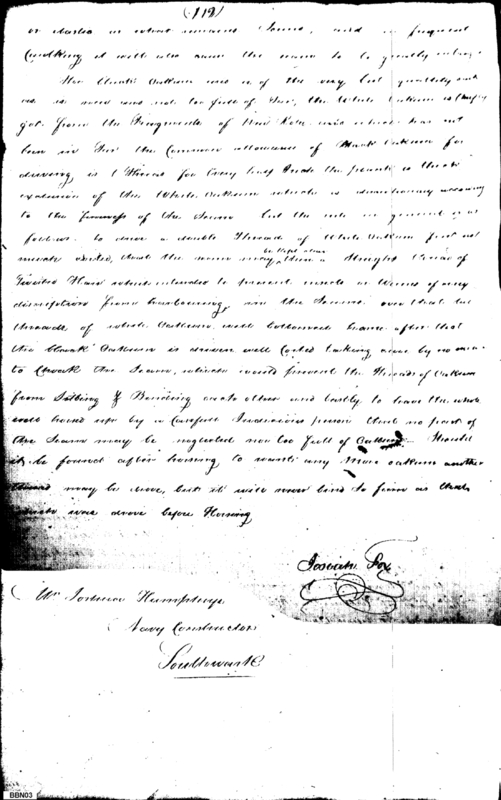 (118)
or in a Seam, and in frequent
Caulking it will the same to be greatly
The Black Oakum use is of the very best quality such
as is and not too full of Tar, the White Oakum is
got from the Fragments of New Rope which has not
been in Tar the Common allowance of Black Oakum for
driving is 1 Thread for Every half Inch the plank is thick
exclusive of the White Oakum which is according
to the of the Seam but the rule in general is as
follows to drive a double Thread of White Oakum first not
be kept clear
the same may Straight of
Twisted Hair which intended to prevent or Worms of any
discription from harbouring in the Seams over that the
threads of white Oakum well bottomed home after that
the Black Oakum is driven well taking care by no means
to Choak the Seam, which would prevent the Threads of Oakum
from & Binding each other and lastly to have the whole
well horsed up by a Carefull Judicious person that no part of
the Seams may be neglected nor too full of Oakum Should
it be found after horsing to want any more oakum another
thread may be drove, but it will never bind so firm as that
which were drove before Horsing
Josiah Fox
Mr Joshua Humphreys
Navy Constructor
Southwark
BBN03